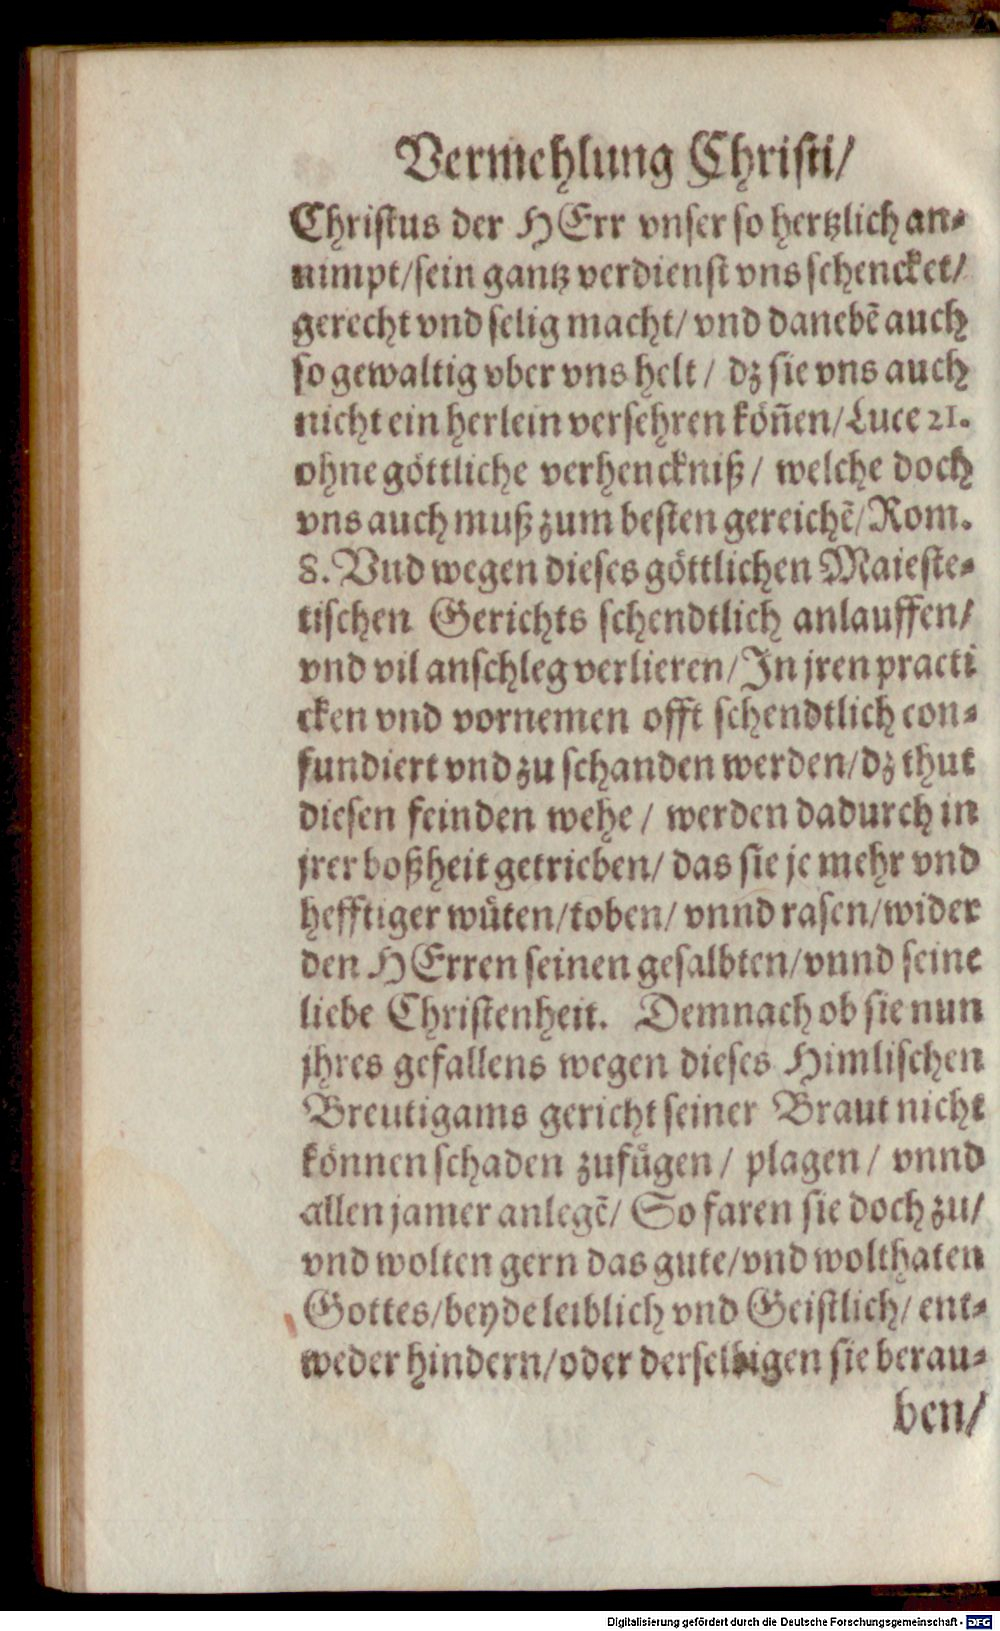 Vermehlung Christi/
Christus der HErr vnser so hertzlich an⸗
nimpt/sein gantz verdienst vns schencket/
gerecht vnd selig macht/ vnd danebē auch
so gewaltig vber vns helt / dz sie vns auch
nicht ein herlein versehren köñen/Luce 21.
ohne göttliche verhenckniß/ welche doch
vns auch muß zum besten gereichē/Rom.
8. Vnd wegen dieses göttlichen Maieste⸗
tischen Gerichts schendtlich anlauffen/
vnd vil anschleg verlieren/In jren practi
cken vnd vornemen offt schendtlich con⸗
fundiert vnd zu schanden werden/dz thut
diesen feinden wehe / werden dadurch in
jrer boßheit getrieben/ das sie je mehr vnd
hefftiger wüten/toben/ vnnd rasen/wider
den HErren seinen gesalbten/vnnd seine
liebe Christenheit. Demnach ob sie nun
jhres gefallens wegen dieses Himlischen
Breutigams gericht seiner Braut nicht
können schaden zufügen / plagen / vnnd
allen jamer anlegē/ So faren sie doch zu/
vnd wolten gern das gute/vnd wolthaten
Gottes/beyde leiblich vnd Geistlich/ ent⸗
weder hindern/oder derselbigen sie berau⸗
ben/
Digitalisierung gefördert durch die Deutsche Forschungsgemeinschaft - DFG